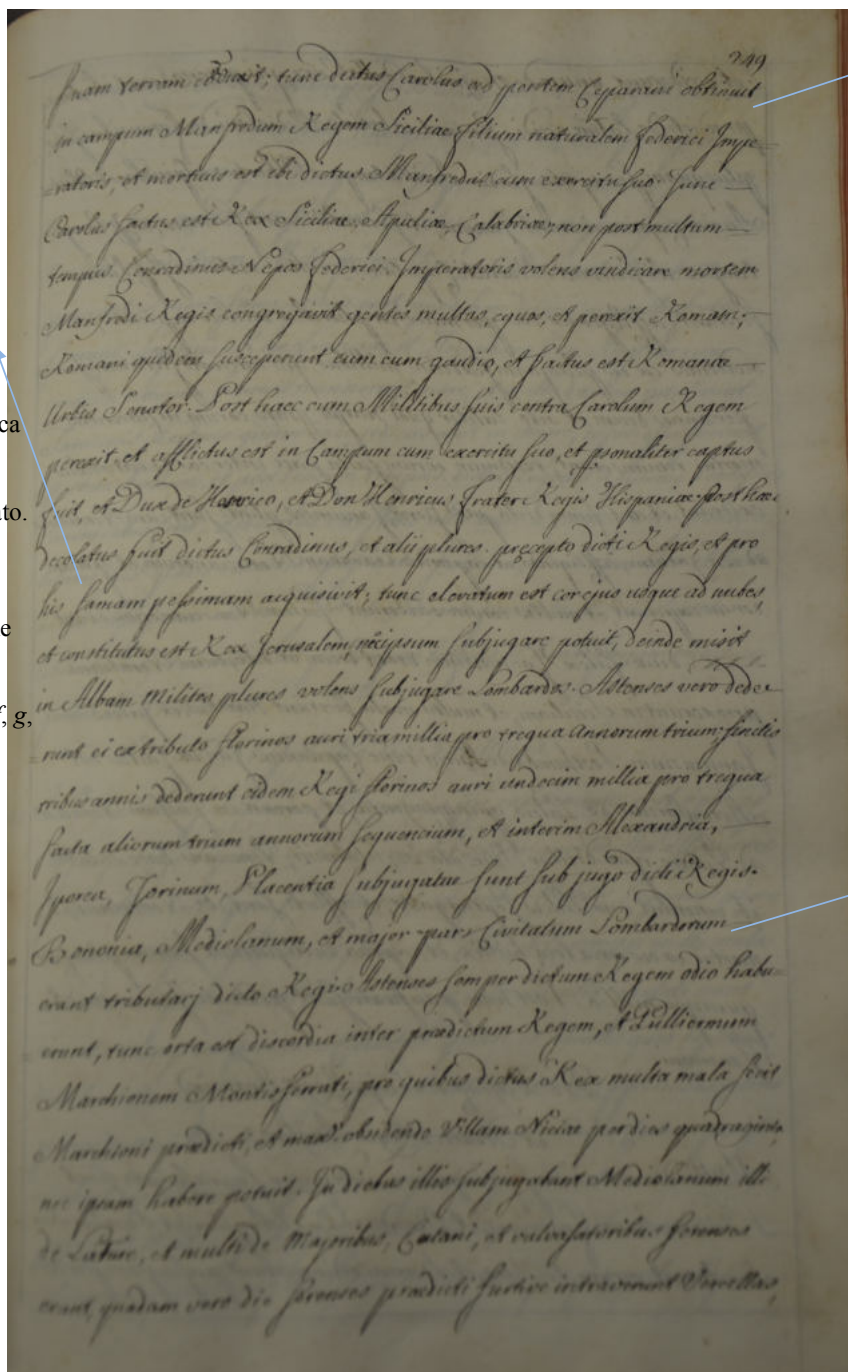 249
suam terram ; tunc dictus Carolus ad pontem Cepparani obtinuit
in campum Manfredum Regem Siciliae filium naturalem Federici Impe-
-ratoris, et mortuus est ibi dictus Manfredus cum exercitu suo. Tunc
Carolus factus est Rex Siciliae, Apuliae, Calabriae, non post multum
tempus Conradinus Nepos Federici Imperatoris volens vindicare mortem
Manfredi Regis congregavit gentes multas, equos, et perexit Romam;
Romani quidem susceperunt eum cum gaudio, et factus est Romanae
Urbis Senator. Post haec cum Militibus suis contra Carolum Regem
perexit, et afflictus est in Campum cum exercitu suo, et psonaliter captus
ca
fuit, et Dux de et Don Henricus frater Regis Hispaniae post haec
ato.
decolatus fuit dictus Conradinus, et alii plures precepto dicti Regis, et pro
his famam pessimam acquisivit; tunc elevatum est cor ejus usque ad nubes,
e
et constitutus est Rex Jerusalem, ipsum subjugare potuit, deinde misit
in Albam Milites plures volens subjugare Lombardos. Astenses vero dede-
f, g,
-runt ei ex tributo florinos auri tria millia pro tregua annorum trium, finitis
tribus annis dederunt eidem Regi florinos auri undecim millia pro tregua
facta aliorum trium annorum sequencium, et interim Alexandria,
Iporea, Torinum, Placentia subjugatae sunt sub jugo dicti Regis.
Bononia, Mediolanum, et major pars Civitatum Lombardorum
erant tributarj dicto Regi. Astenses semper dictum Regem odio habu-
erunt, tunc orta est discordia inter praedictum Regem, et Gulliermum
Marchionem Montisferrati, pro quibus dictus Rex multa mala fecit
Marchioni praedicti, et obsidendo Villam Niciae per dies quadraginta,
nec ipsam habere potuit. In diebus illis subjugabant Mediolanum illi
de Lature, et multi de Majoribus, Catani, et valvasatoribus forenses
erant, quadam vero die forenses praedicti furtive intraverunt Vercellas,